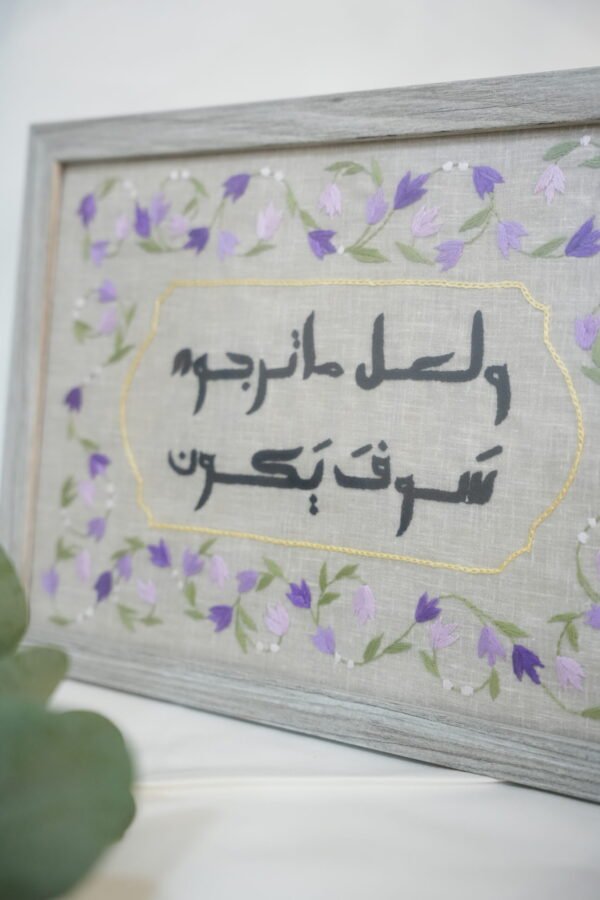 ولعل ماترجوه
سَوفَ يَكون